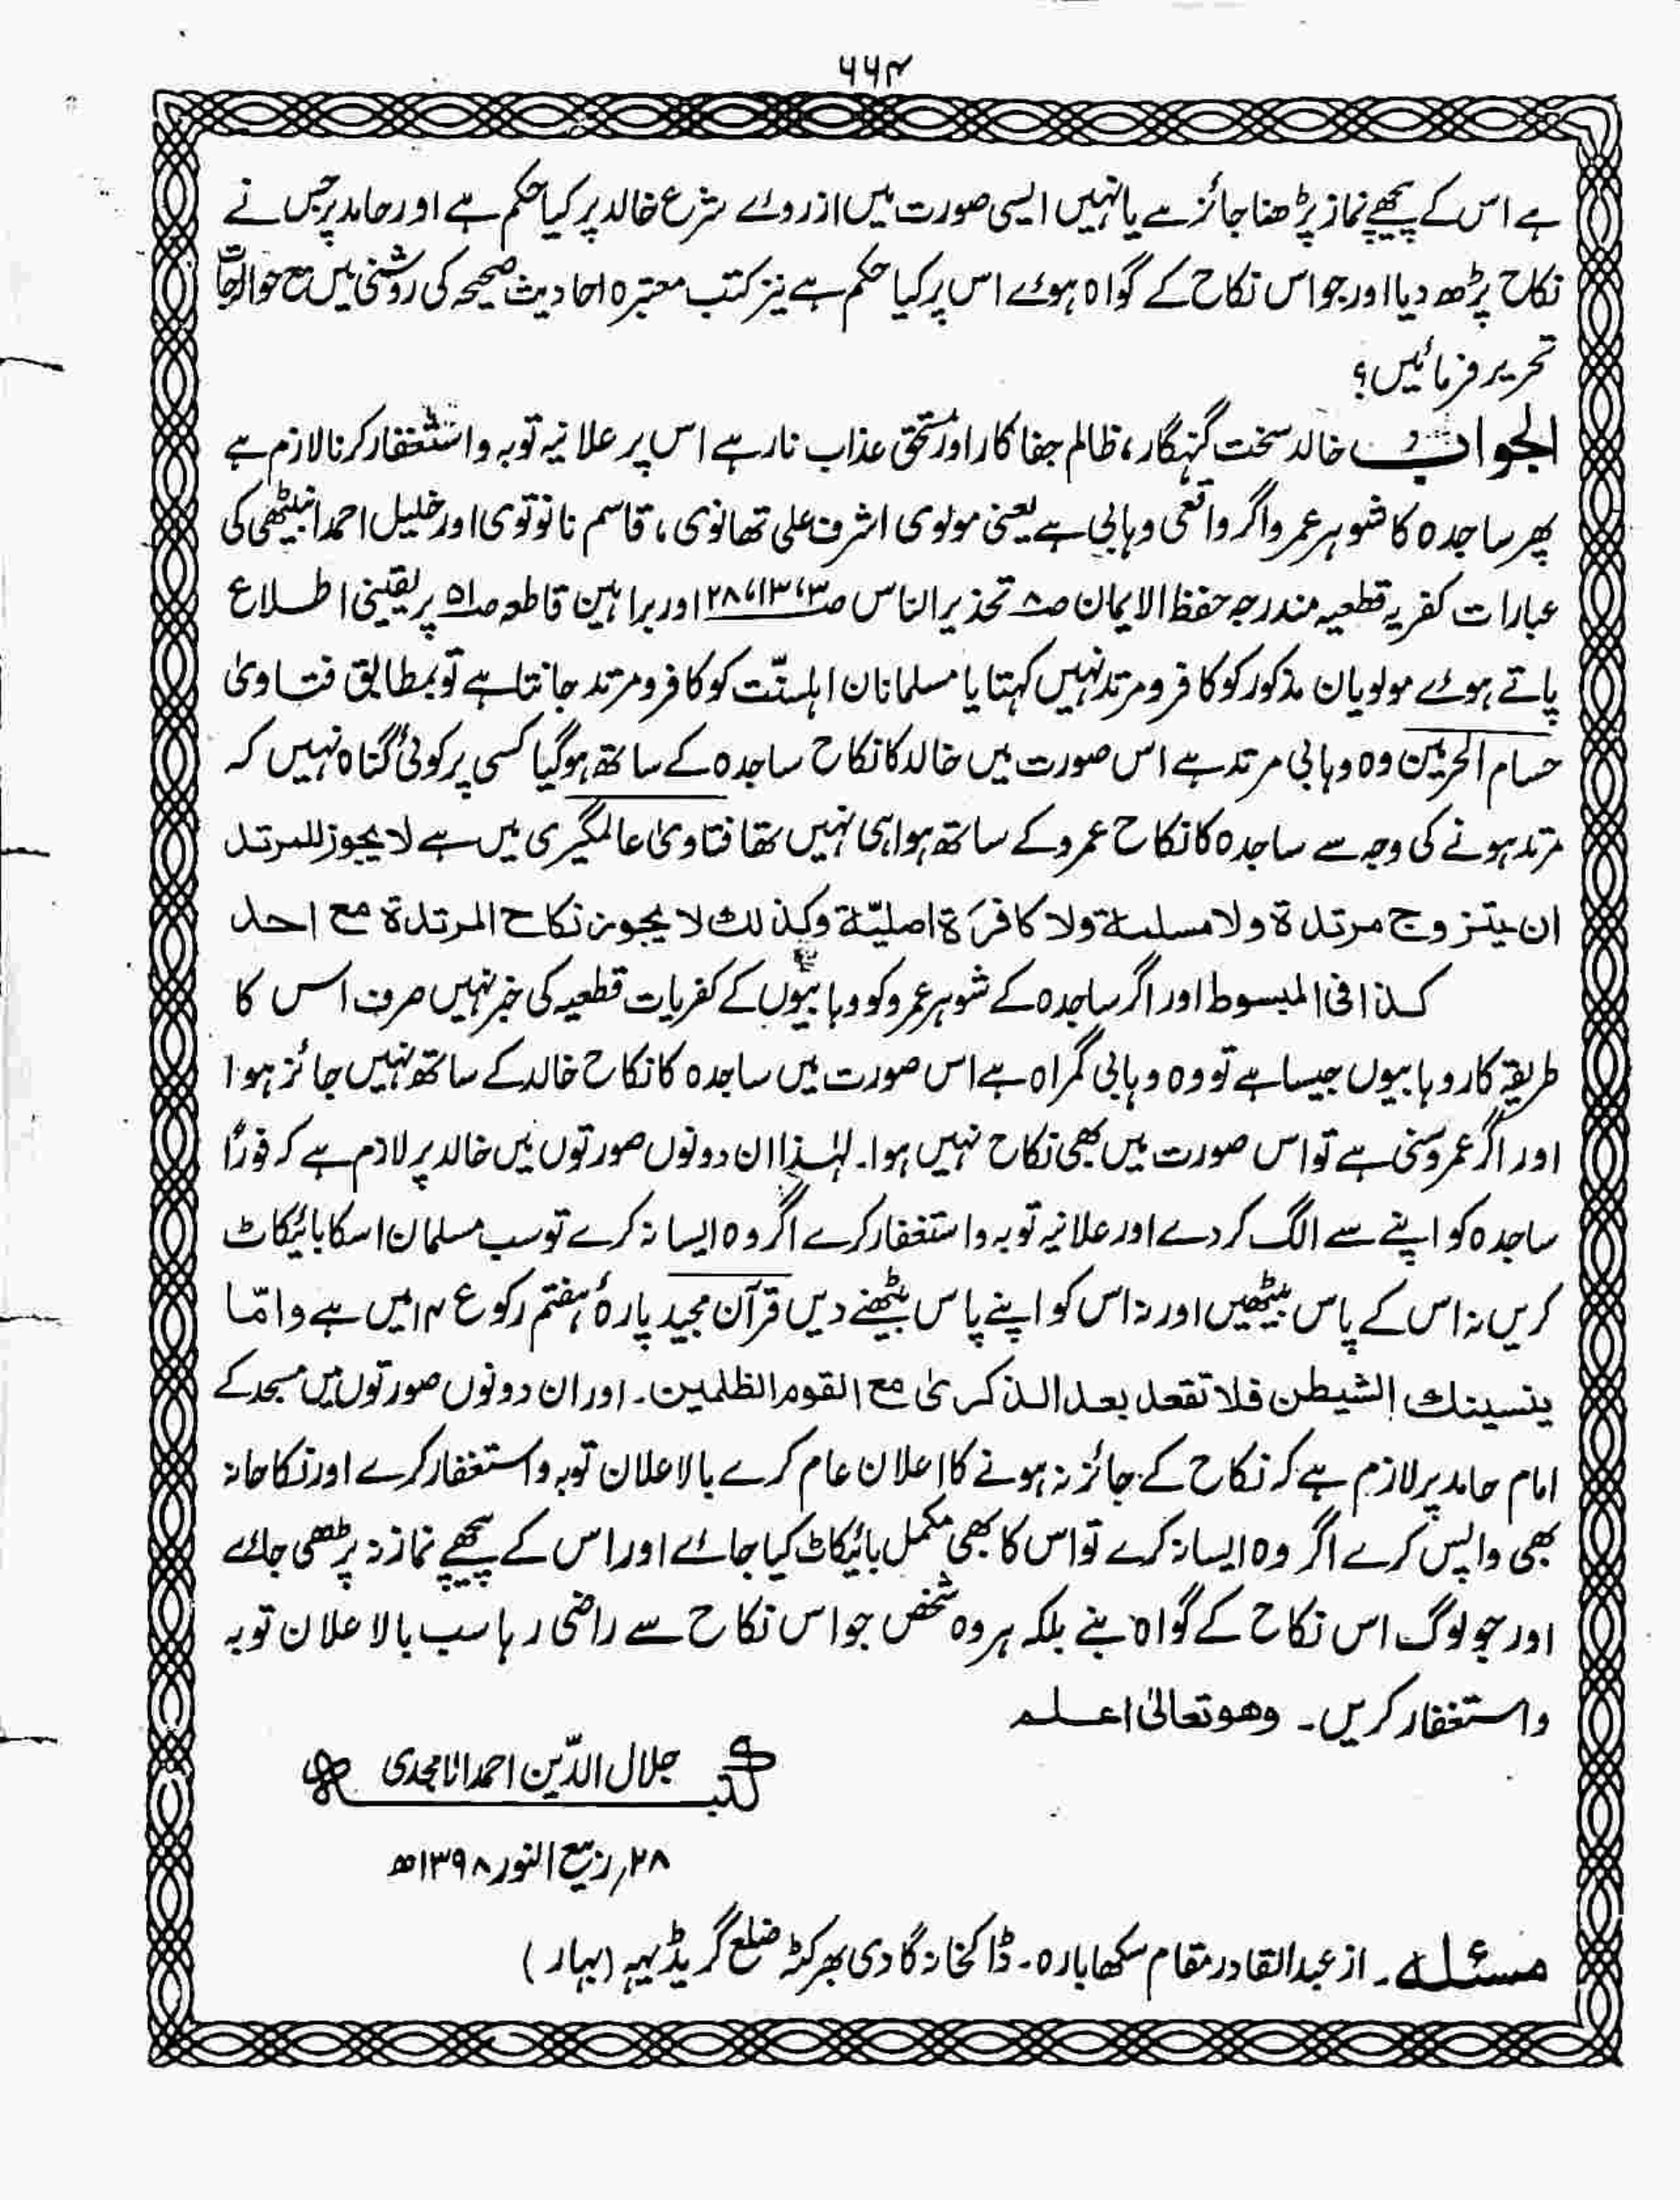 ۶۶۴
ہے اس کے پیچھے نماز پڑھنا جائز ہے یا نہیں ایسی صورت میں ازروئے شرع خالد پر کیا حکم ہے اور حامد پر جس نے
نکاح پڑھ دیا اور جو اس نکاح کے گواہ ہوئے اس پر کیا حکم ہے نیز کتب معتبرہ احادیث صحیحہ کی روشنی میں مع حوالجات
تحریر فرمائیں؟
الجواب خالد سخت گنہگار، ظالم جفا کار اور مستحق عذاب نار ہے اس پر علانیہ توبہ و استغفار کرنا لازم ہے
پھر ساجدہ کا شوہر عمرو اگر واقعی وہابی ہے یعنی مولوی اشرف علی تھانوی، قاسم نانوتوی اور خلیل احمد انبیٹھی کی
عبارات کفریہ قطعیہ مندرجہ حفظ الایمان صـ۸ تحذیر الناس صـ۳، ۱۳، ۲۸ اور براہین قاطعہ صـ۵۱ پر یقینی اطلاع
پاتے ہوئے مولویان مذکور کو کافر و مرتد نہیں کہتا یا مسلمانان اہلسنّت کو کافر و مرتد جانتا ہے تو بمطابق فتاویٰ
حسام الحرمین وہ وہابی مرتد ہے اس صورت میں خالد کا نکاح ساجدہ کے ساتھ ہو گیا کسی پر کوئی گناہ نہیں کہ
مرتد ہونے کی وجہ سے ساجدہ کا نکاح عمرو کے ساتھ ہوا ہی نہیں تھا فتاویٰ عالمگیری میں ہے لا یجوز للمرتد
ان یتزوج مرتدة ولا مسلمة ولا کافرَة اصلیّة وکذلك لا یجوز نکاح المرتدة مع احد
کذا فی المبسوط اور اگر ساجدہ کے شوہر عمرو کو وہابیوں کے کفریات قطعیہ کی خبر نہیں صرف اس کا
طریقۂ کار وہابیوں جیسا ہے تو وہ وہابی گمراہ ہے اس صورت میں ساجدہ کا نکاح خالد کے ساتھ نہیں جائز ہوا
اور اگر عمرو سنی ہے تو اس صورت میں بھی نکاح نہیں ہوا۔ لہٰذا ان دونوں صورتوں میں خالد پر لازم ہے کہ فورًا
ساجدہ کو اپنے سے الگ کر دے اور علانیہ توبہ و استغفار کرے اگر وہ ایسا نہ کرے تو سب مسلمان اسکا بائیکاٹ
کریں نہ اس کے پاس بیٹھیں اور نہ اس کو اپنے پاس بیٹھنے دیں قرآن مجید پارۂ ہفتم رکوع ۱۴ میں ہے وامّا
ینسینك الشیطن فلا تقعد بعد الذکریٰ مع القوم الظلمین۔ اور ان دونوں صورتوں میں مسجد کے
امام حامد پر لازم ہے کہ نکاح کے جائز نہ ہونے کا اعلان عام کرے بالاعلان توبہ و استغفار کرے اور نکاحانہ
بھی واپس کرے اگر وہ ایسا نہ کرے تو اس کا بھی مکمل بائیکاٹ کیا جائے اور اس کے پیچھے نماز نہ پڑھی جائے
اور جو لوگ اس نکاح کے گواہ بنے بلکہ ہر وہ شخص جو اس نکاح سے راضی رہا سب بالاعلان توبہ
و استغفار کریں۔ وھو تعالیٰ اعلم
کتبہ جلال الدّین احمد الامجدی
۲۸؍ ربیع النور ۱۳۹۸ھ
مسئلہ۔ از عبد القادر مقام سکھا بارہ۔ ڈاکخانہ گادی بھرکٹہ ضلع گریڈیہہ (بہار)